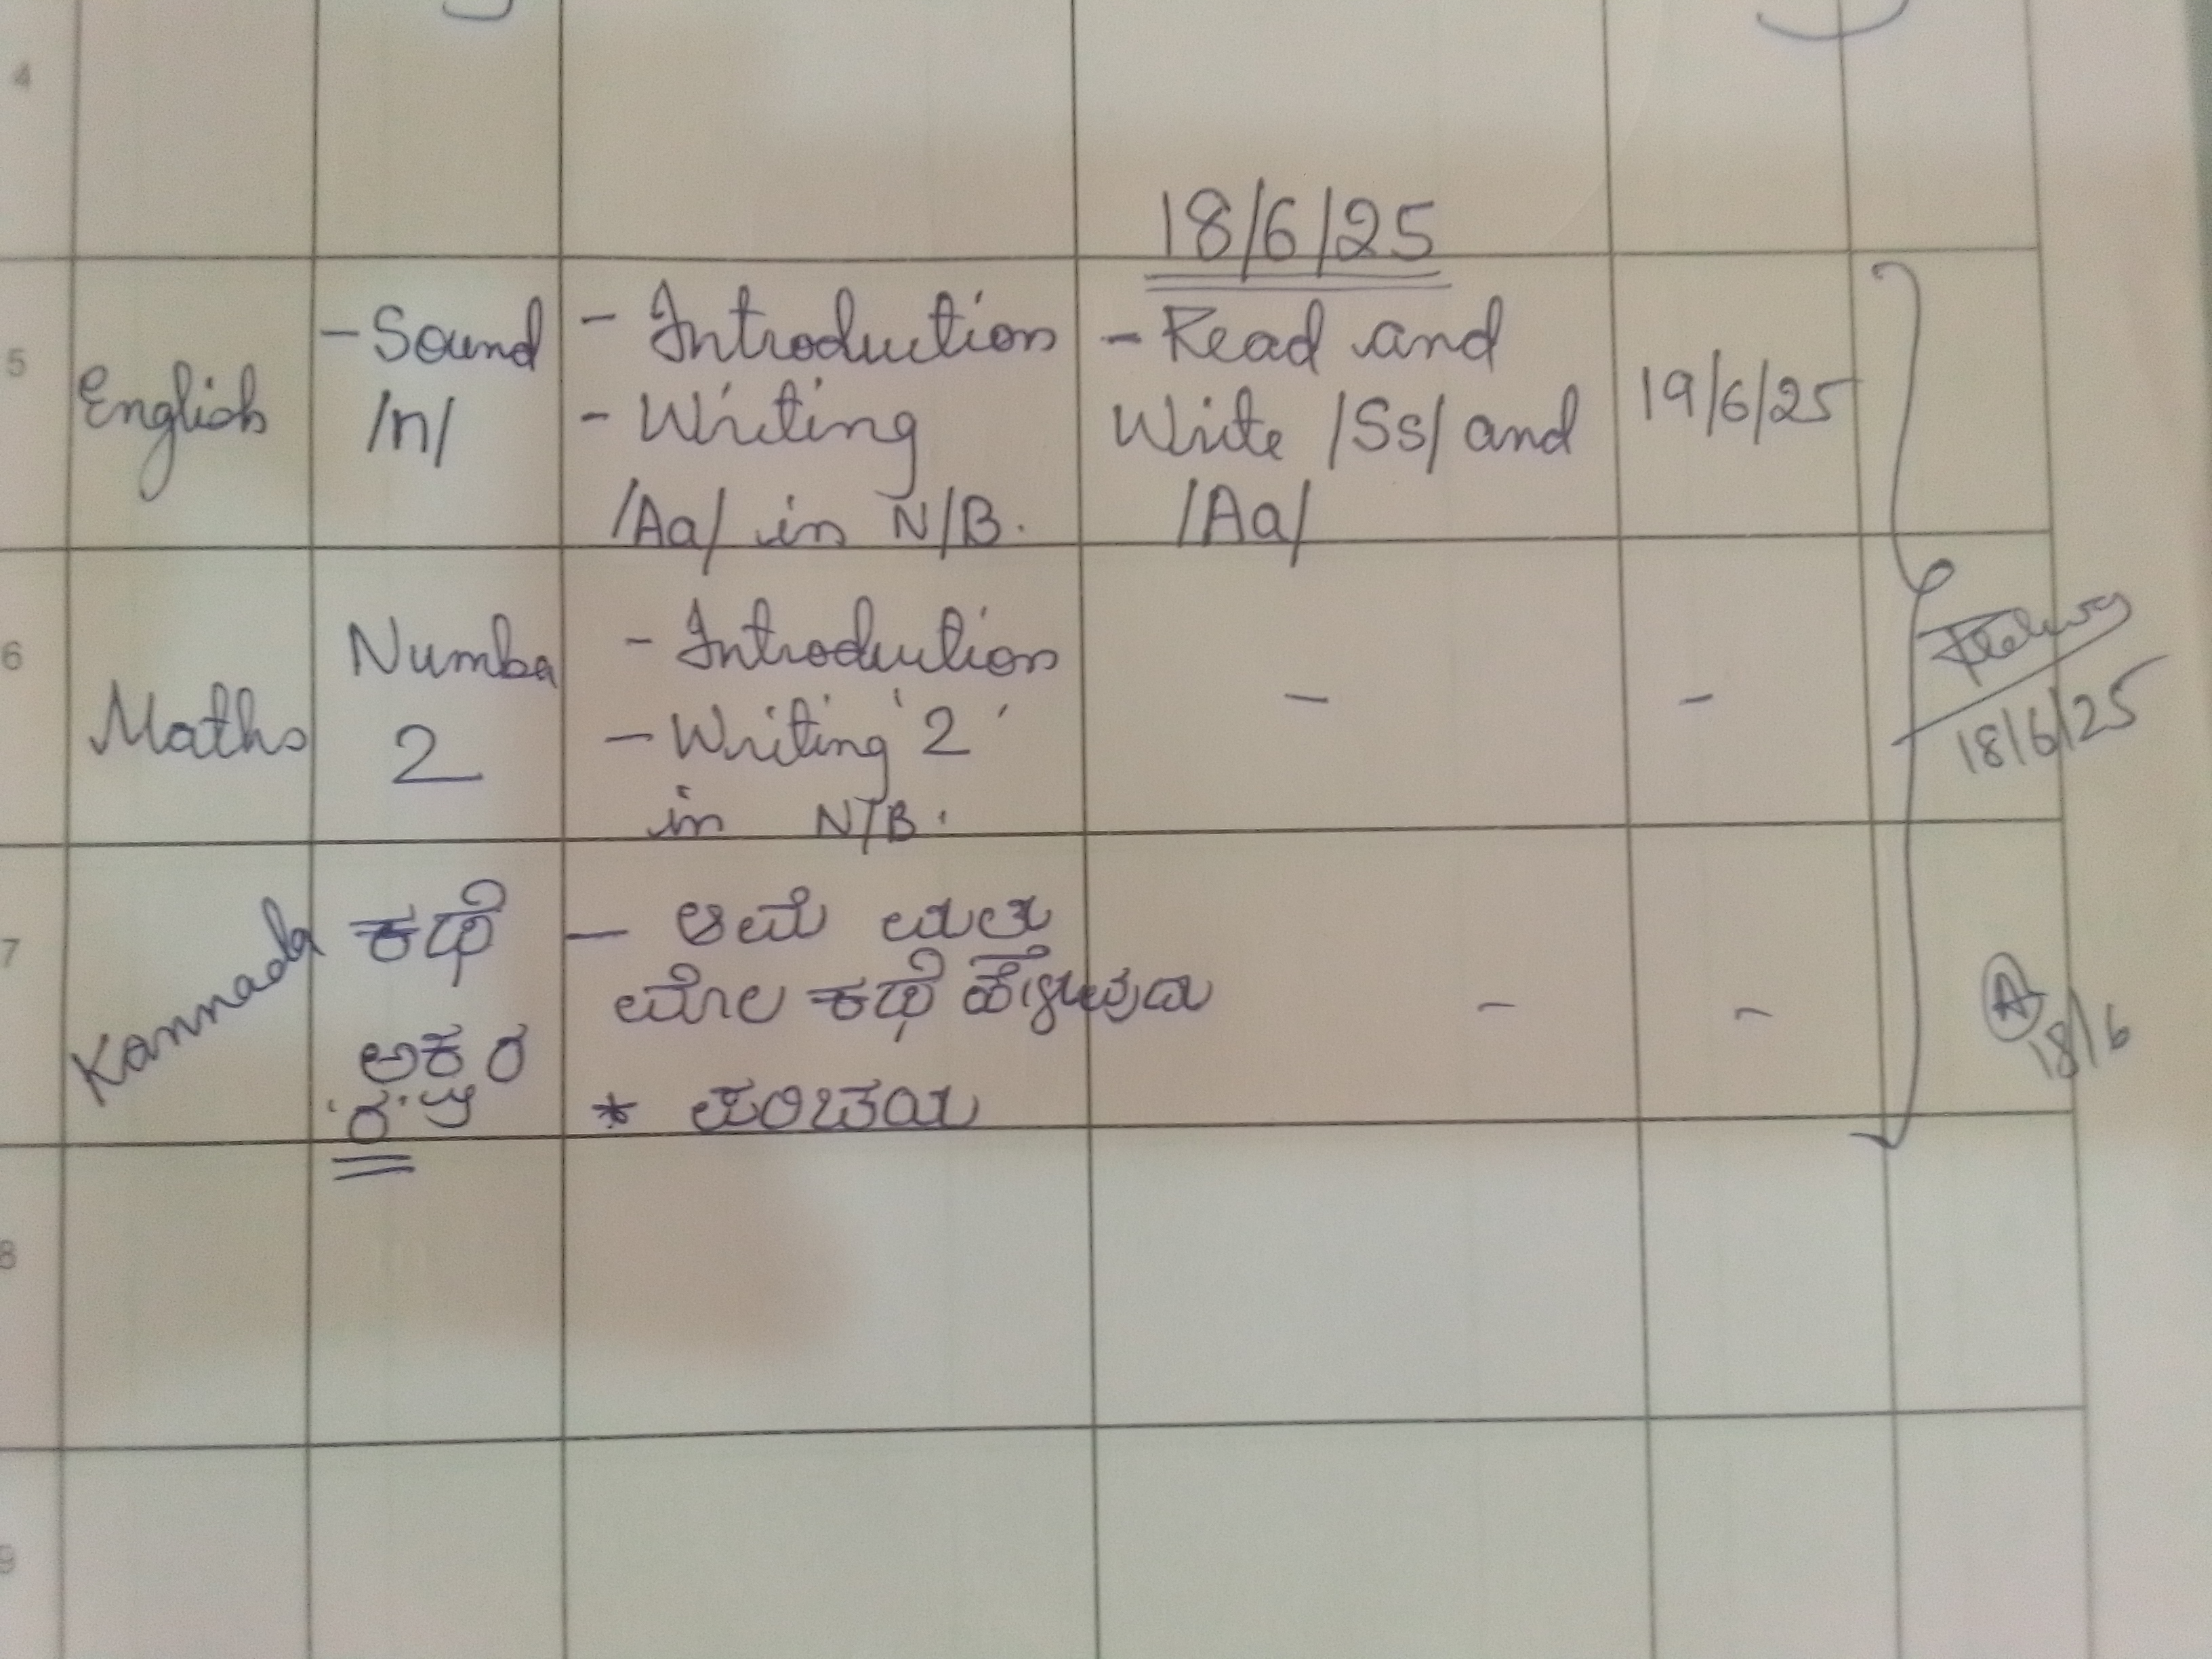 4
18/6/25
5
English
- Sound
/n/
- Introduction
- Writing
/Aa/ in N/B.
- Read and
Write /Ss/ and
/Aa/
19/6/25
6
Maths
Number
2
- Introduction
- Writing '2'
in N/B.
-
-
18/6/25
7
Kannada
ಕಥೆ
ಅಕ್ಷರ
'ರ'
- ಆಮೆ ಮತ್ತು
ಮೊಲ ಕಥೆ ಹೇಳುವುದು
* ಪರಿಚಯ
-
-
A
18/6
8
9